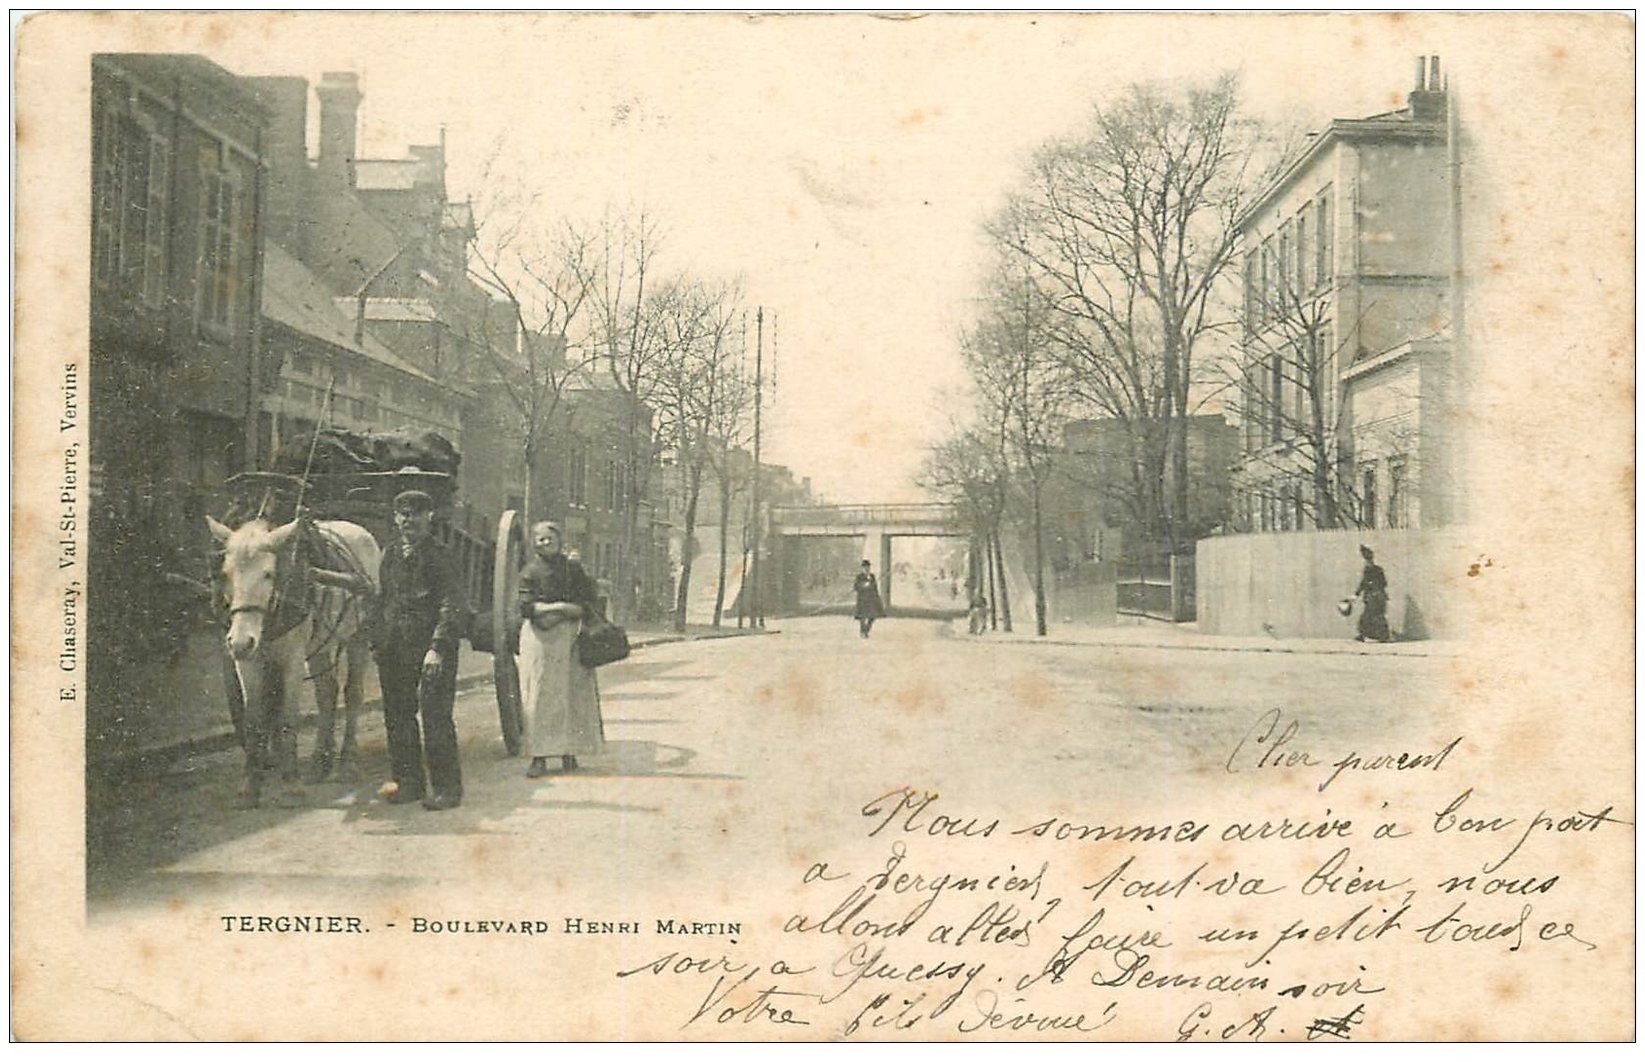 E. Chaseray, Val-St-Pierre, Vervins
TERGNIER. - BOULEVARD HENRI MARTIN
Cher parent
Nous sommes arrivé à bon port
a Tergnier, tout va bien, nous
allons aller faire un petit tour ce
soir, a Quessy. A Demain soir
Votre fils dévoué G. A.